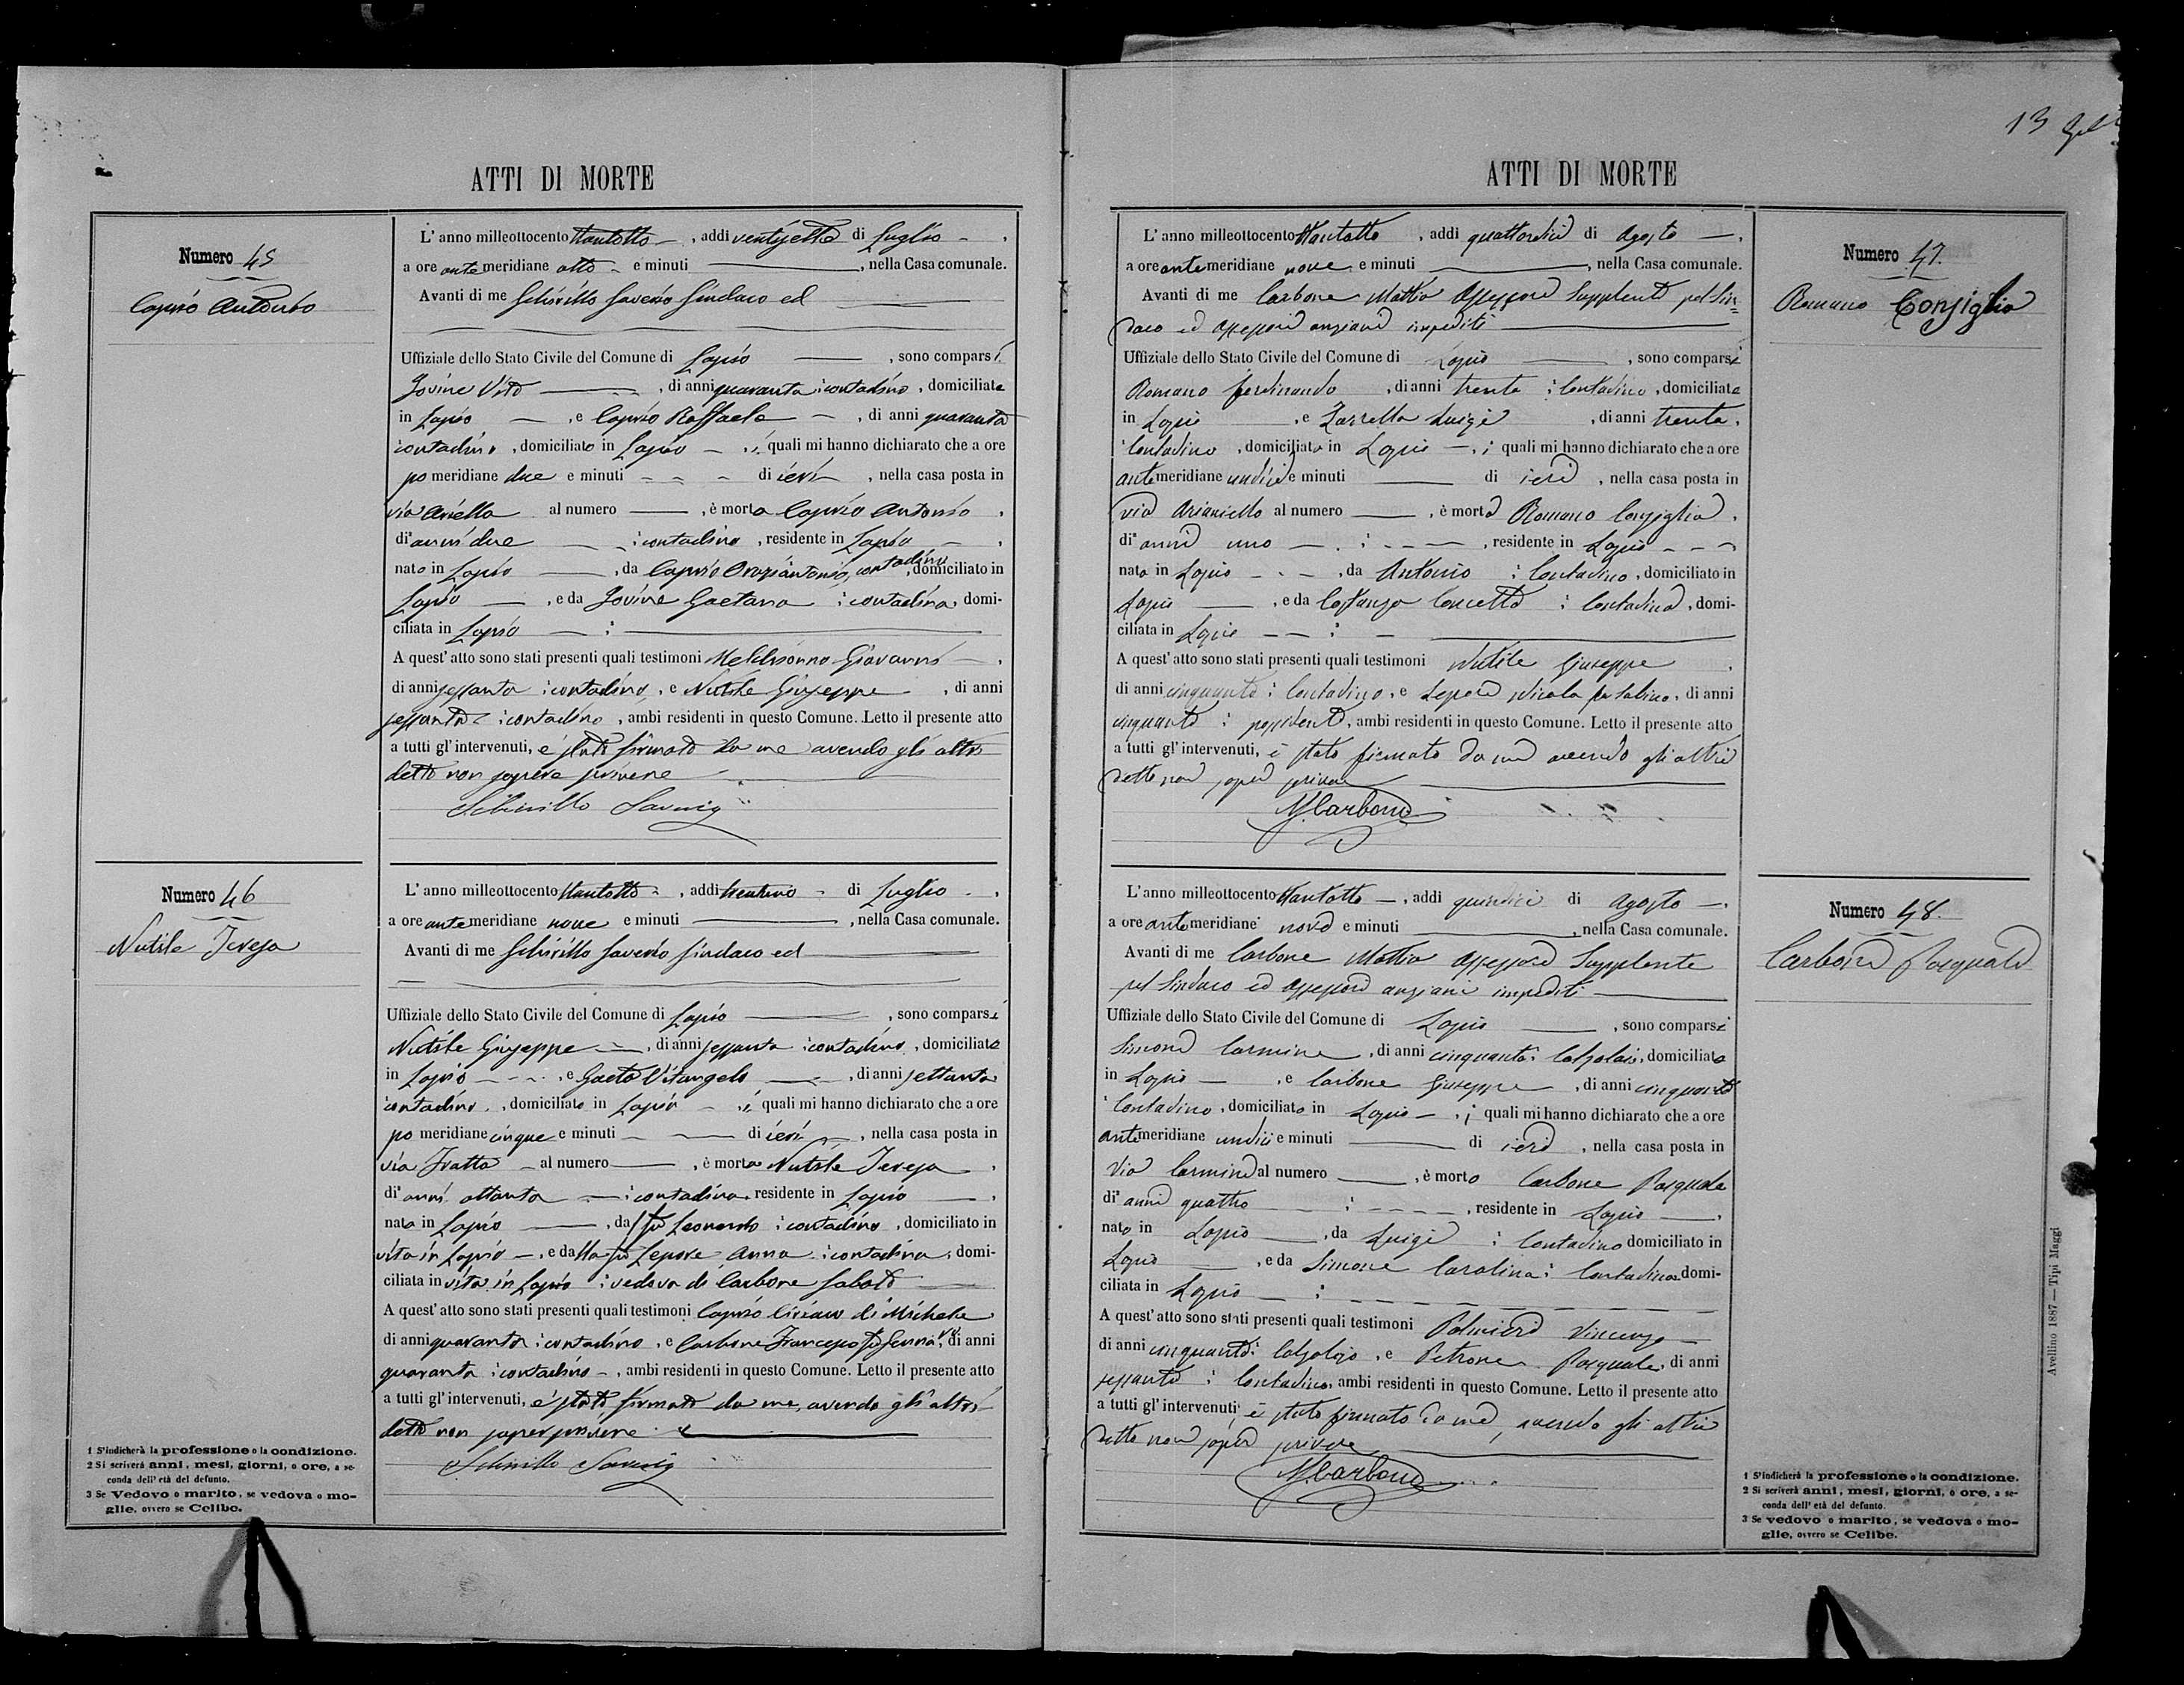 13
ATTI DI MORTE
Numero 45
Caprio Antonio
L'anno milleottocento ttantotto, addi ventisette di Luglio
a ore ante meridiane otto e minuti, nella Casa comunale.
Avanti di me Schirillo Saverio Sindaco ed
Uffiziale dello Stato Civile del Comune di Lapio, sono comparsi
Iovine Vito, di anni quaranta contadino, domiciliato
in Lapio, e Caprio Raffaele, di anni quaranta
contadino, domiciliato in Lapio, i quali mi hanno dichiarato che a ore
po meridiane due e minuti di ieri, nella casa posta in
via Ariella al numero, è morto Caprio Antonio,
di anni due contadino, residente in Lapio,
nato in Lapio, da Caprio Oraziantonio, contadino, domiciliato in
Lapio, e da Iovine Gaetana contadina, domi-
ciliata in Lapio
A quest'atto sono stati presenti quali testimoni Melchionno Giovanni,
di anni sessanta contadino, e Nutile Giuseppe, di anni
sessanta contadino, ambi residenti in questo Comune. Letto il presente atto
a tutti gl'intervenuti, è stato firmato da me avendo gli altri
detto non sapere scrivere
Schirillo Saverio
Numero 46
Nutile Teresa
L'anno milleottocento ttantotto, addi trentuno di Luglio,
a ore ante meridiane nove e minuti, nella Casa comunale.
Avanti di me Schirillo Saverio Sindaco ed
Uffiziale dello Stato Civile del Comune di Lapio, sono comparsi
Nutile Giuseppe, di anni sessanta contadino, domiciliato
in Lapio, e Gaeta Vitangelo, di anni settanta
contadino, domiciliato in Lapio, i quali mi hanno dichiarato che a ore
po meridiane cinque e minuti di ieri, nella casa posta in
via Fratta al numero, è morta Nutile Teresa,
di anni ottanta contadina residente in Lapio,
nata in Lapio, da fu Leonardo contadino, domiciliato in
vita in Lapio, e dalla fu Lepore Anna contadina, domi-
ciliata in vita in Lapio vedova di Carbone Sabato
A quest'atto sono stati presenti quali testimoni Caprio Ciriaco di Michele
di anni quaranta contadino, e Carbone Francesco fu, di anni
quaranta contadino, ambi residenti in questo Comune. Letto il presente atto
a tutti gl'intervenuti, è stato firmato da me, avendo gli altri
detto non saper scrivere
Schirillo Saverio
1 S'indicherà la professione o la condizione.
2 Si scriverà anni, mesi, giorni, o ore, a se-
conda dell'età del defunto.
3 Se Vedovo o marito, se vedova o mo-
glie, ovvero se Celibe.
ATTI DI MORTE
Numero 47.
Romano Consiglio
L'anno milleottocento ttantotto, addi quattordici di Agosto,
a ore ante meridiane nove e minuti, nella Casa comunale.
Avanti di me Carbone Mattia Assessore Supplente pel Sin=
daco ed Assessori anziani impediti
Uffiziale dello Stato Civile del Comune di Lapio, sono comparsi
Romano Ferdinando, di anni trenta contadino, domiciliato
in Lapio, e Zarrella Luigi, di anni trenta,
contadino, domiciliato in Lapio, i quali mi hanno dichiarato che a ore
ante meridiane undici e minuti di ieri, nella casa posta in
via Arianiello al numero, è morto Romano Consiglio,
di anni uno, residente in Lapio
nato in Lapio, da Antonio contadino, domiciliato in
Lapio, e da Costanza Concetta contadina, domi-
ciliata in Lapio
A quest'atto sono stati presenti quali testimoni Nutile Giuseppe,
di anni cinquanta contadino, e Lepore Nicola fu Sabino, di anni
cinquanta possidente, ambi residenti in questo Comune. Letto il presente atto
a tutti gl'intervenuti, è stato firmato da me avendo gli altri
detto non saper scrivere
M. Carbone
Numero 48.
Carbone Pasquale
L'anno milleottocento ttantotto, addi quindici di Agosto,
a ore ante meridiane nove e minuti, nella Casa comunale.
Avanti di me Carbone Mattia Assessore Supplente
pel Sindaco ed Assessori anziani impediti
Uffiziale dello Stato Civile del Comune di Lapio, sono comparsi
Simone Carmine, di anni cinquanta calzolaio, domiciliato
in Lapio, e Carbone Giuseppe, di anni cinquanta
contadino, domiciliato in Lapio, i quali mi hanno dichiarato che a ore
ante meridiane undici e minuti di ieri, nella casa posta in
Via Carmine al numero, è morto Carbone Pasquale
di anni quattro, residente in Lapio,
nato in Lapio, da Luigi contadino domiciliato in
Lapio, e da Simone Carolina contadina domi-
ciliata in Lapio
A quest'atto sono stati presenti quali testimoni Palmieri Vincenzo
di anni cinquanta calzolajo, e Petrone Pasquale, di anni
sessanta contadino, ambi residenti in questo Comune. Letto il presente atto
a tutti gl'intervenuti, è stato firmato da me, avendo gli altri
detto non saper scrivere
M. Carbone
1 S'indicherà la professione o la condizione.
2 Si scriverà anni, mesi, giorni, o ore, a se-
conda dell'età del defunto.
3 Se vedovo o marito, se vedova o mo-
glie, ovvero se Celibe.
Avellino 1887 — Tipi Maggi